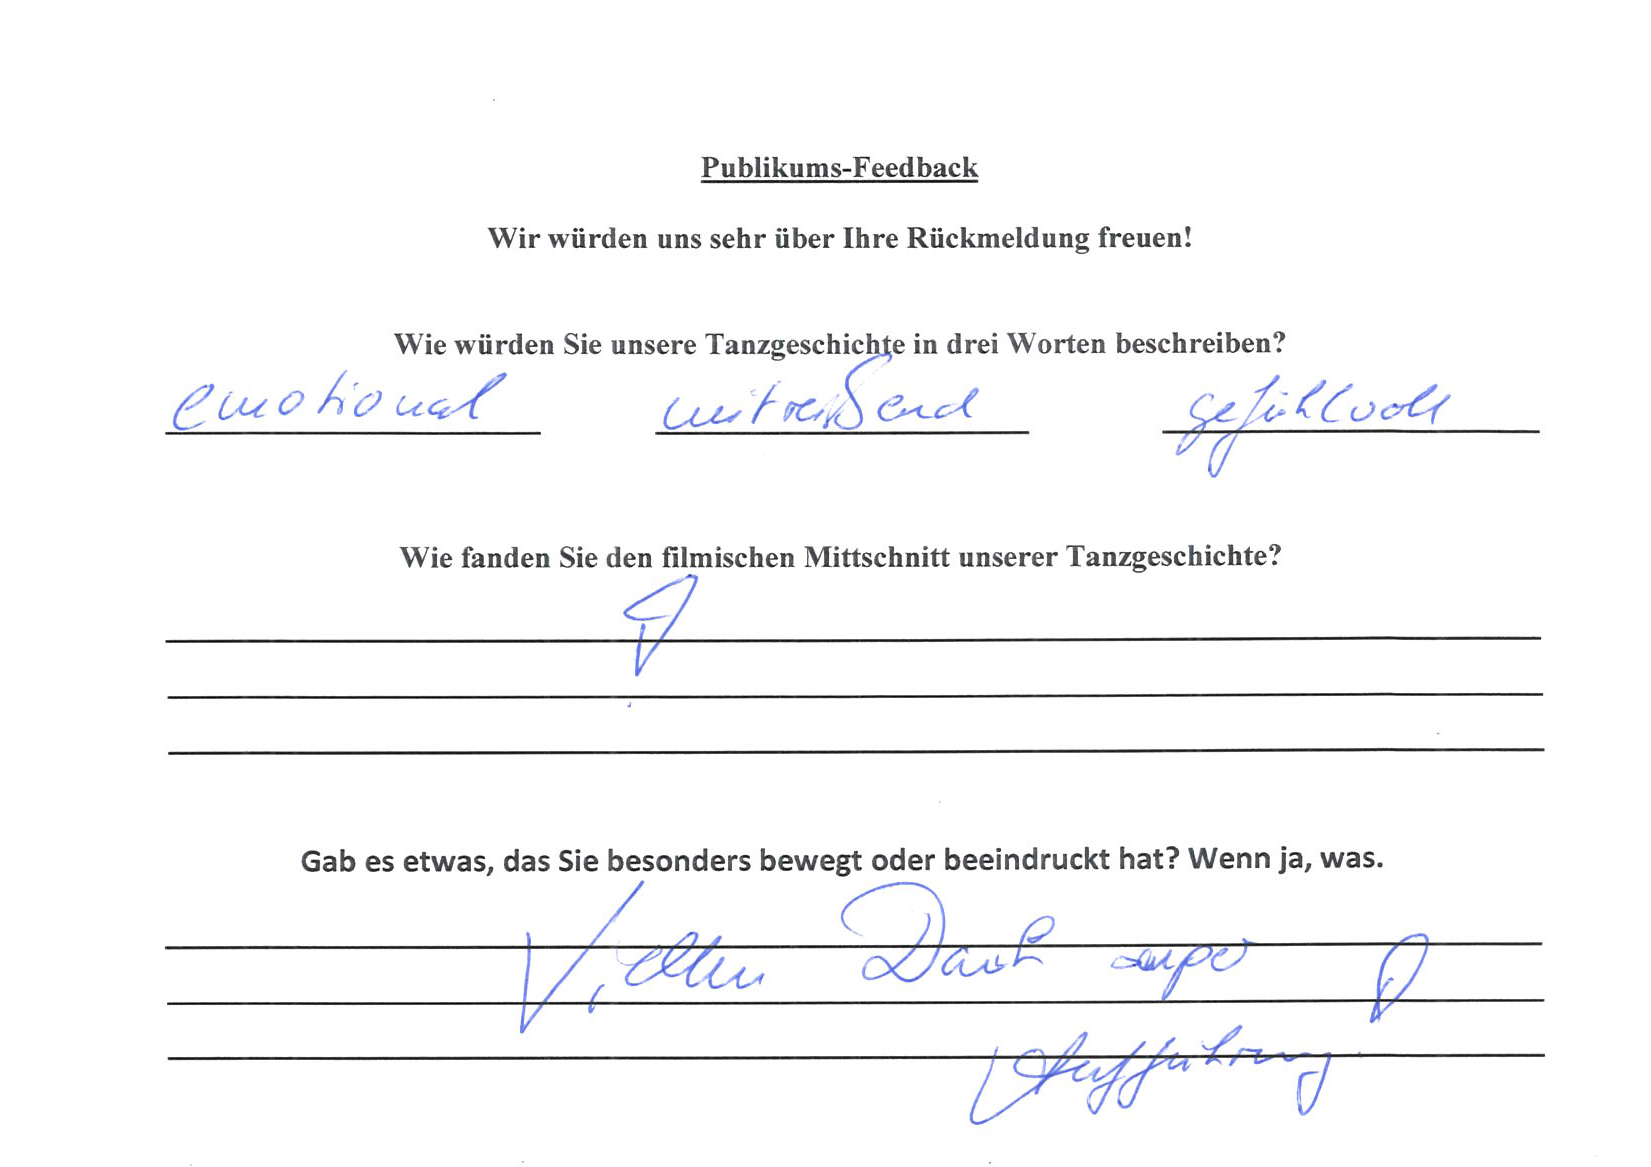 Publikums-Feedback
Wir würden uns sehr über Ihre Rückmeldung freuen!
Wie würden Sie unsere Tanzgeschichte in drei Worten beschreiben?
emotional mitreißend gefühlvoll
Wie fanden Sie den filmischen Mittschnitt unserer Tanzgeschichte?
!
Gab es etwas, das Sie besonders bewegt oder beeindruckt hat? Wenn ja, was.
Vielen Dank super !
Aufführung